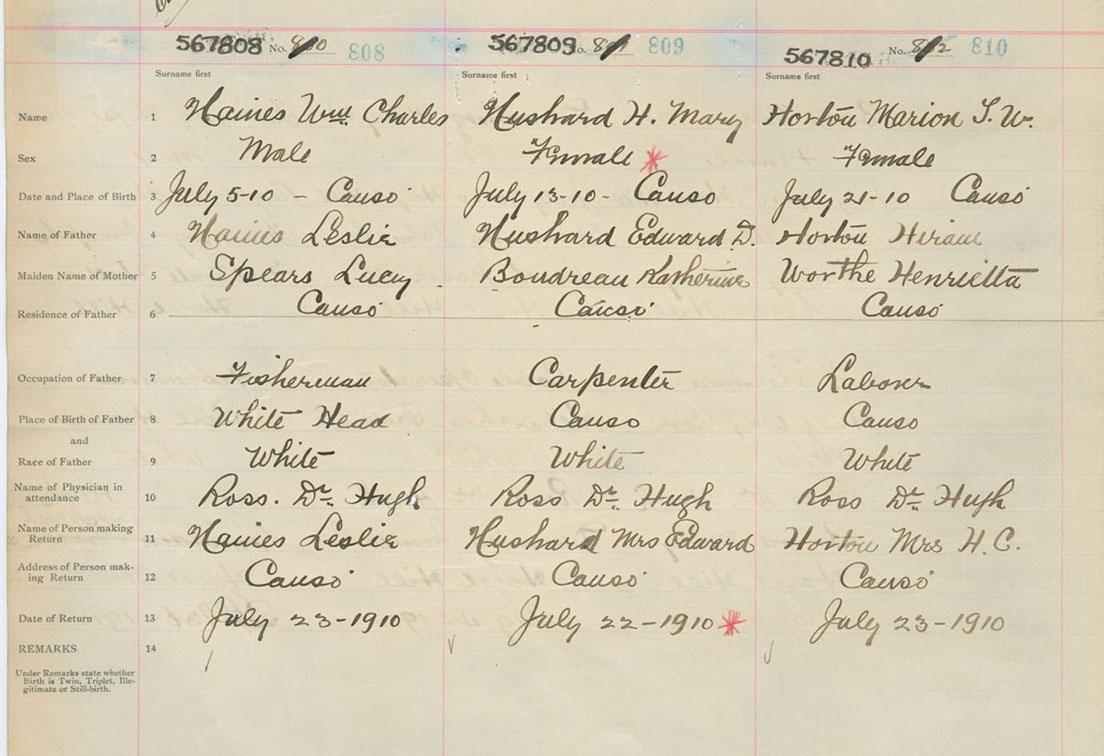 567808 No. 808
567809 No. 809
567810 No. 812 810
Surname first Surname first Surname first
Name 1 Haines Wm. Charles Hushard H. Mary Horton Marion T. W.
Sex 2 Male Female * Female
Date and Place of Birth 3 July 5-10 - Canso July 13-10 - Canso July 21-10 Canso
Name of Father 4 Haines Leslie Hushard Edward D. Horton Hiram
Maiden Name of Mother 5 Spears Lucy Boudreau Katherine Worthe Henrietta
Residence of Father 6 Canso Canso Canso
Occupation of Father 7 Fisherman Carpenter Laborer
Place of Birth of Father 8 White Head Canso Canso
and
Race of Father 9 White White White
Name of Physician in attendance 10 Ross. Dr. Hugh Ross Dr. Hugh Ross Dr. Hugh
Name of Person making Return 11 Haines Leslie Hushard Mrs Edward Horton Mrs H. C.
Address of Person mak-
ing Return 12 Canso Canso Canso
Date of Return 13 July 23-1910 July 22-1910 * July 23-1910
REMARKS 14
Under Remarks state whether
Birth is Twin, Triplet, Ille-
gitimate or Still-birth.